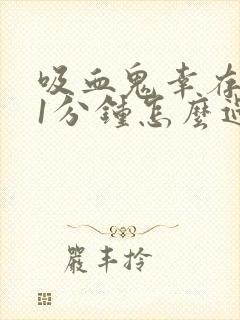 吸血鬼幸存
1分鐘怎麼過
嚴丰拎